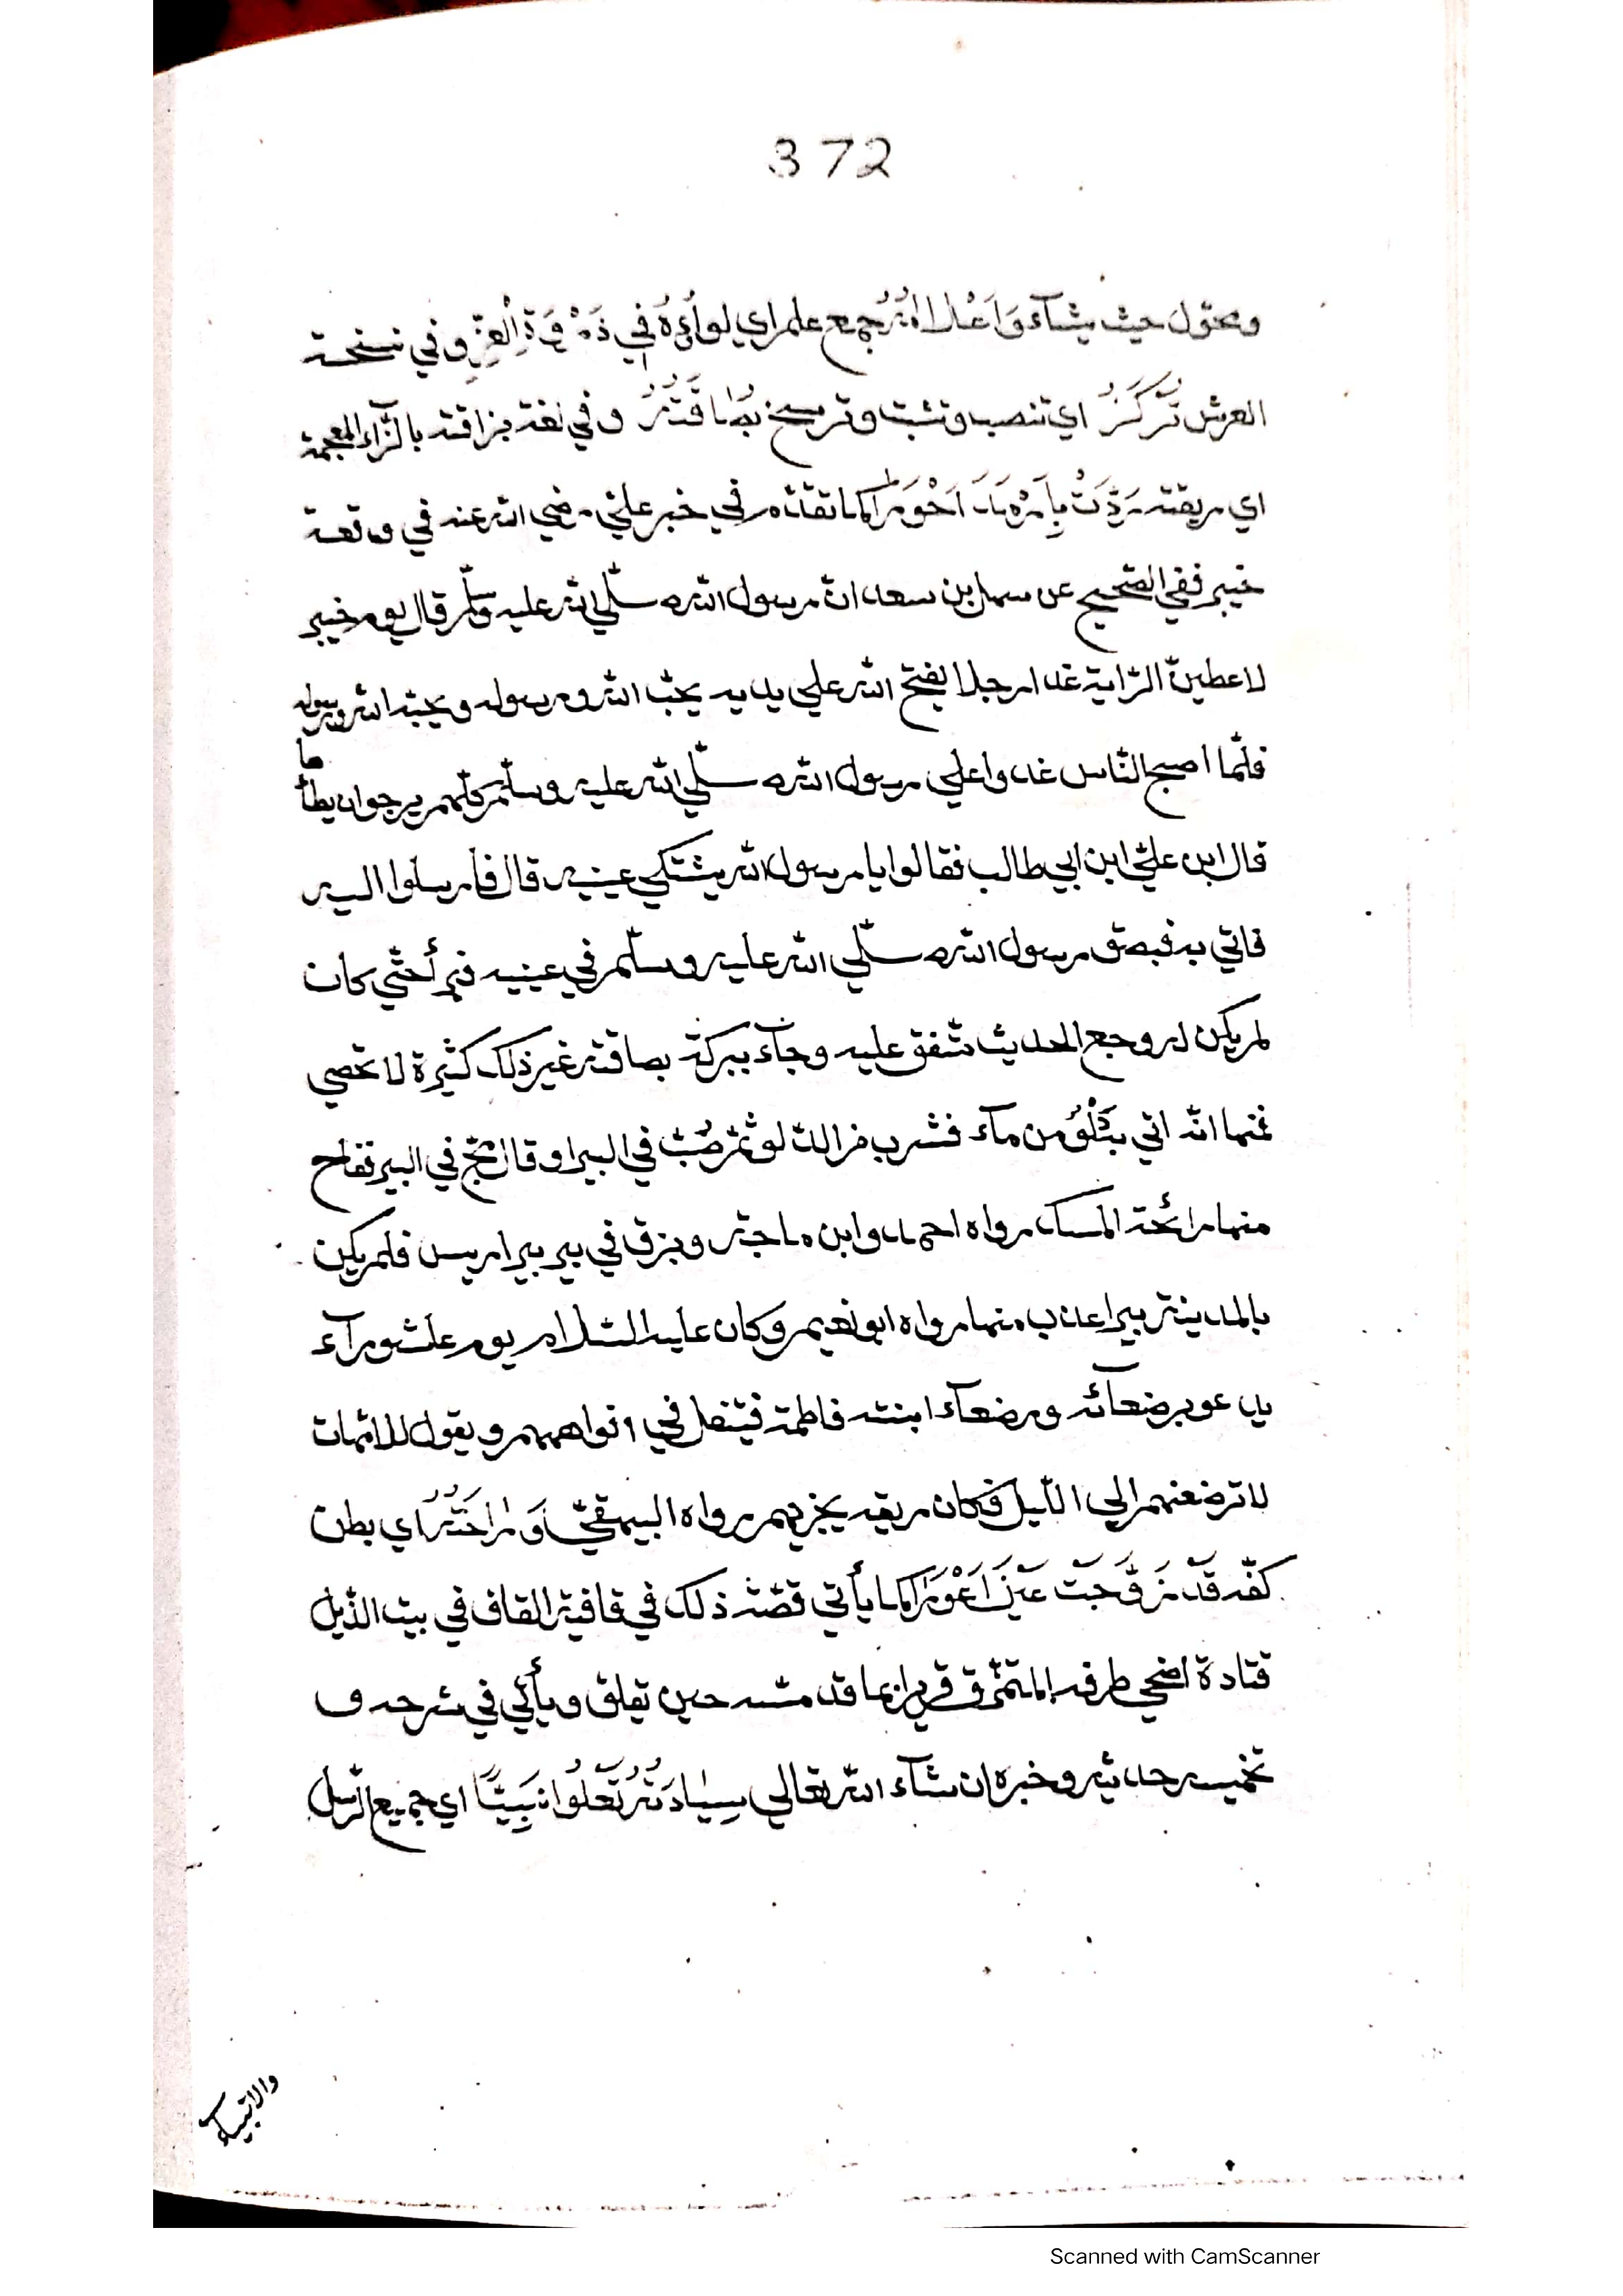 372
وتحوّل حيث يشآء وَاَعْلَامُهُ جمع علم اي لوآؤه فِي ذَرْوَةِ الْعِزِّ وفي نسخة
العرش تُرْكَزُ اي تنصب وتثبت وترسخ بُصَاقَتُهُ وفي لغة بزاقته بالزّاء المعجمة
اي ريقته رَدَّتْ بِاَرْمَدَ اَحْوَرَا كما تقدّم في خبر عليّ رضي الله عنه في وقعة
خيبر ففي الصّحيح عن سهل بن سعد انّ رسول الله صلّي الله عليه وسلّم قال يوم خيبر
لاعطينّ الرّاية غدا رجلا يفتح الله علي يديه يحبّ الله ورسوله ويحبّه الله ورسوله
فلمّا اصبح النّاس غدوا علي رسول الله صلّي الله عليه وسلّم كلّهم يرجوا ن يطأ ها
قال اين عليّ ابن ابي طالب فقالوا يا رسول الله يشتكي عينيه قال فأرسلوا اليه
فاتي به فبصق رسول الله صلّي الله عليه وسلّم في عينيه فبرأ حتّي كان
لم يكن له وجع الحديث متّفق عليه وجآء ببركة بصاقته غير ذلك كثيرة لا تحصي
فمنها انّه اتي بدَلْوٍ من مآء فشرب من الدّلو ثمّ صُبّ في البير او قال مجّ في البير ففاح
منها رائحة المسك رواه احمد وابن ماجة وبزق في بير بير اريس فلم يكن
بالمدينة بير اعذب منها رواه ابو نعيم وكان عليه السّلام يوم عاشورآء
يدعو برضعآئه ورضعآء ابنته فاطمة فيتفل في افواههم ويقول للامّهات
لا ترضعنهم الي اللّيل فكان ريقه يجزيهم رواه البيهقيّ وَرَاحَتُهُ اي بطن
كفّه قَدْ زَوَّجَتْ عَيْنَ اَعْوَرَا كما يأتي قصّة ذلك في قافية القاف في بيت الذّيل
قتادة اضحي طرفه المتمزّق قرير ازعا قد مسّه حين تفلق ويأتي في شرحه و
تخميسه حديثه وخبره ان شآء الله تعالي سِيَادَتُهُ تَعْلُوا نَبِيًّا اي جميع الرّسل
والانبيآء
Scanned with CamScanner